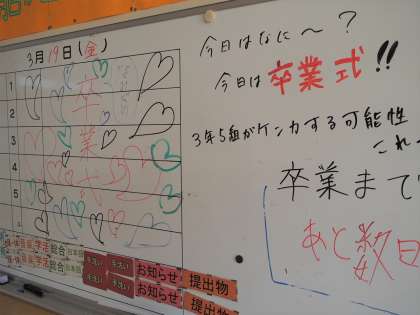 3月19日(金)
1
2
3
4
5
卒業式
今日はなに～？
今日は卒業式!!
3年5組がケンカする可能性
これ
卒業まで
あと数日
学活 総合 お知らせ 提出物
学活 総合 お知らせ 提出物